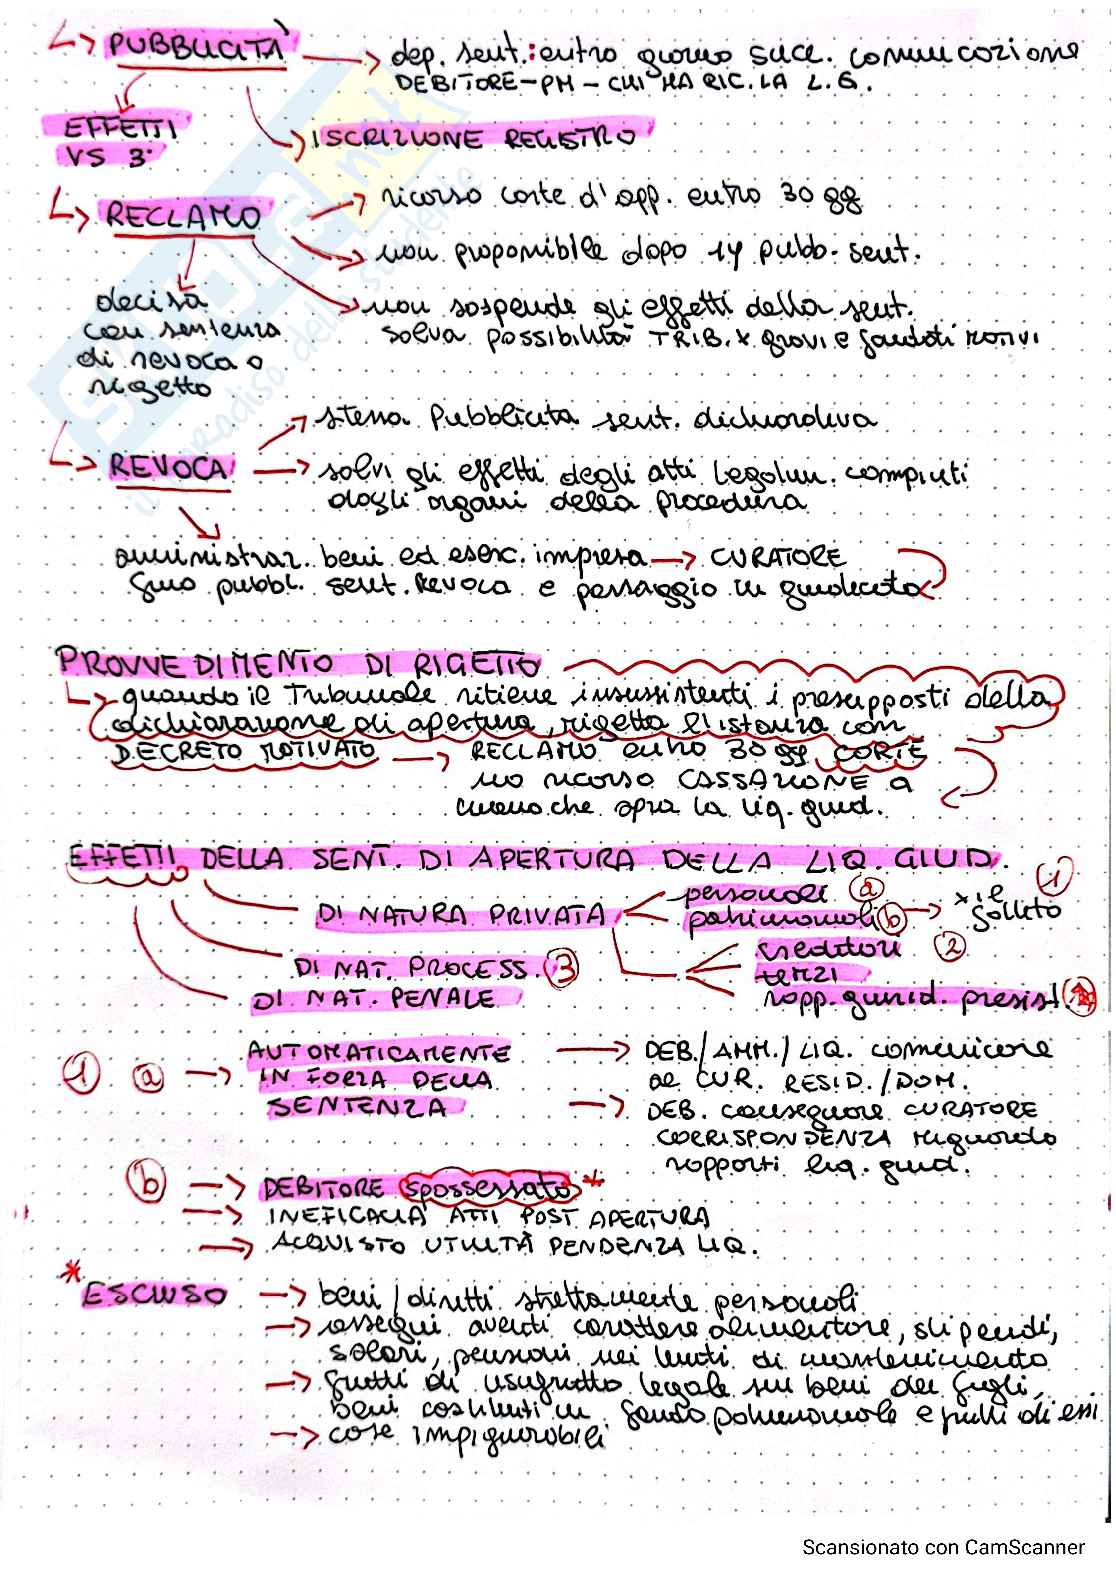 PUBBLICITÀ
dep. sent.: entro giorno succ. comunicazione
DEBITORE-PM-CHI HA RIC. LA L.G.
EFFETTI
VS 3°
ISCRIZIONE REGISTRO
RECLAMO
ricorso corte d'app. entro 30 gg
non proponibile dopo 1y pubb. sent.
decisa
con sentenza
di revoca o
rigetto
non sospende gli effetti della sent.
salva possibilità TRIB. x gravi e fondati motivi
REVOCA
stessa pubblicità sent. dichiarativa
salvi gli effetti degli atti legalm. compiuti
dagli organi della procedura
amministraz. beni ed eserc. impresa → CURATORE
fino pubbl. sent. revoca e passaggio in giudicato
PROVVEDIMENTO DI RIGETTO
quando il Tribunale ritiene insussistenti i presupposti della
dichiarazione di apertura, rigetta l'istanza con
DECRETO MOTIVATO → RECLAMO entro 30 gg CORTE
no ricorso CASSAZIONE a
meno che apra la liq. giud.
EFFETTI DELLA SENT. DI APERTURA DELLA LIQ. GIUD.
DI NATURA PRIVATA
personali (a)
patrimoniali (b) → x il
fallito
1
creditori 2
terzi
rapp. giurid. presist.
DI NAT. PROCESS. 3
DI NAT. PENALE
1 a → AUTOMATICAMENTE
IN FORZA DELLA
SENTENZA
→ DEB./AMM./LIQ. comunicare
al CUR. RESID./DOM.
→ DEB. consegnare CURATORE
CORRISPONDENZA riguardo
rapporti liq. giud.
b → DEBITORE spossessato *
→ INEFICACIA ATTI POST APERTURA
→ ACQUISTO UTILITÀ PENDENZA LIQ.
* ESCLUSO → beni/diretti strettamente personali
→ assegni aventi carattere alimentare, stipendi,
salari, pensioni nei limiti di mantenimento
→ frutti di usufrutto legale sui beni dei figli,
beni costituiti in fondo patrimoniale e frutti di essi
→ cose impignorabili
Scansionato con CamScanner